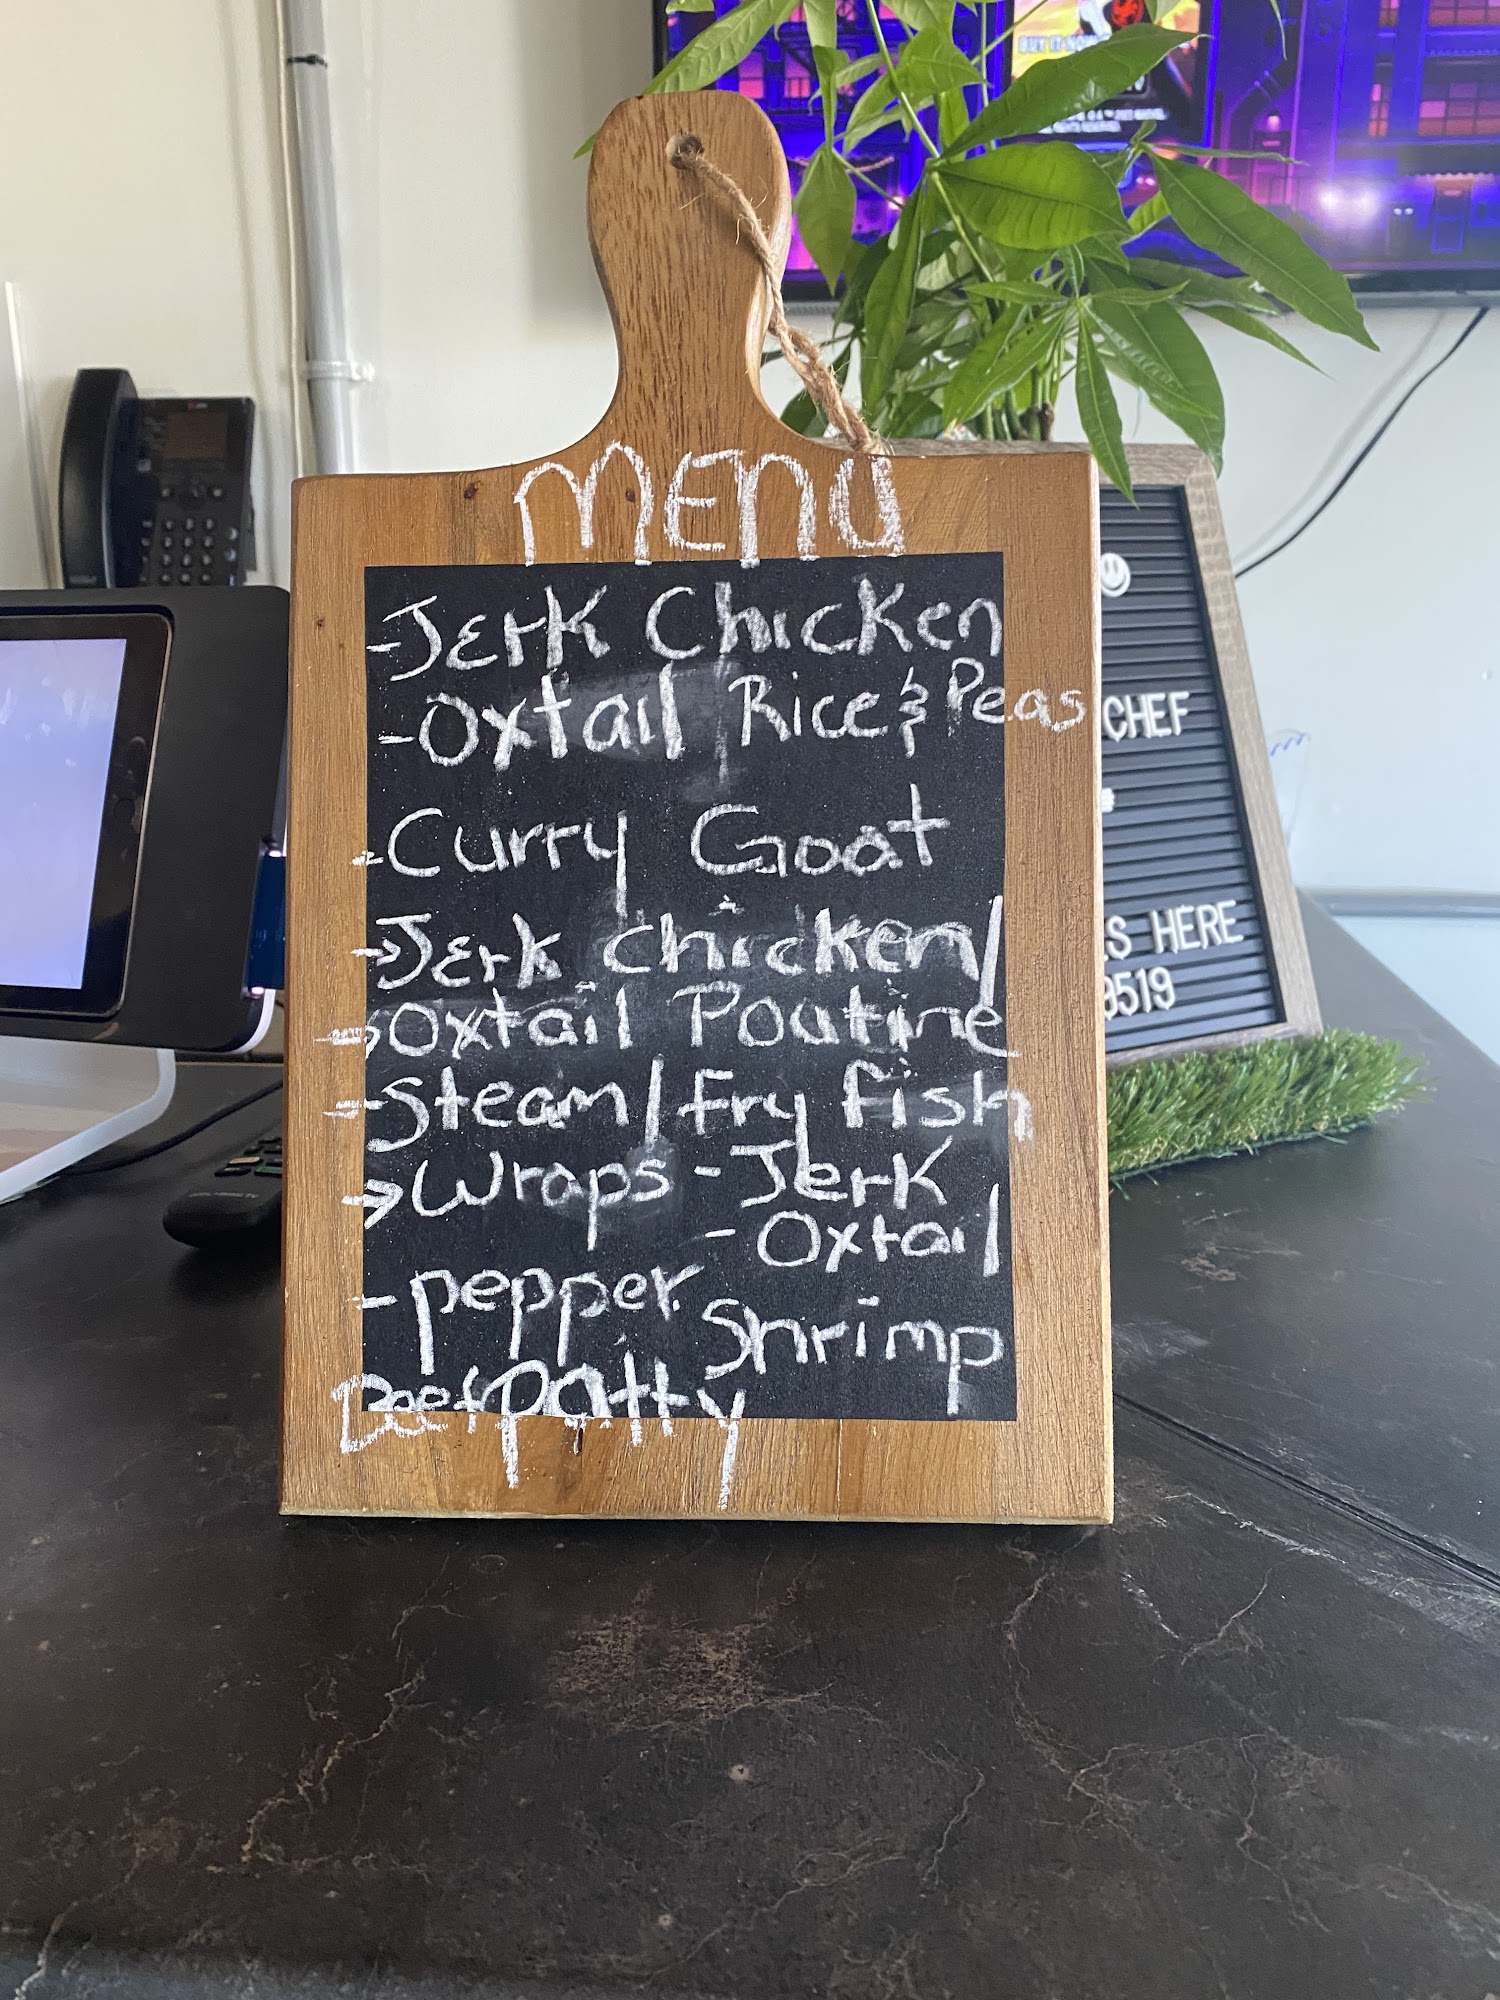 MENU
-Jerk Chicken
-Oxtail Rice & Peas
-Curry Goat
→Jerk chicken/
→Oxtail Poutine
-Steam/Fry fish
→Wraps -Jerk
-Oxtail
-pepper Shrimp
Beef patty
CHEF
S HERE
9519
BUY IT NOW